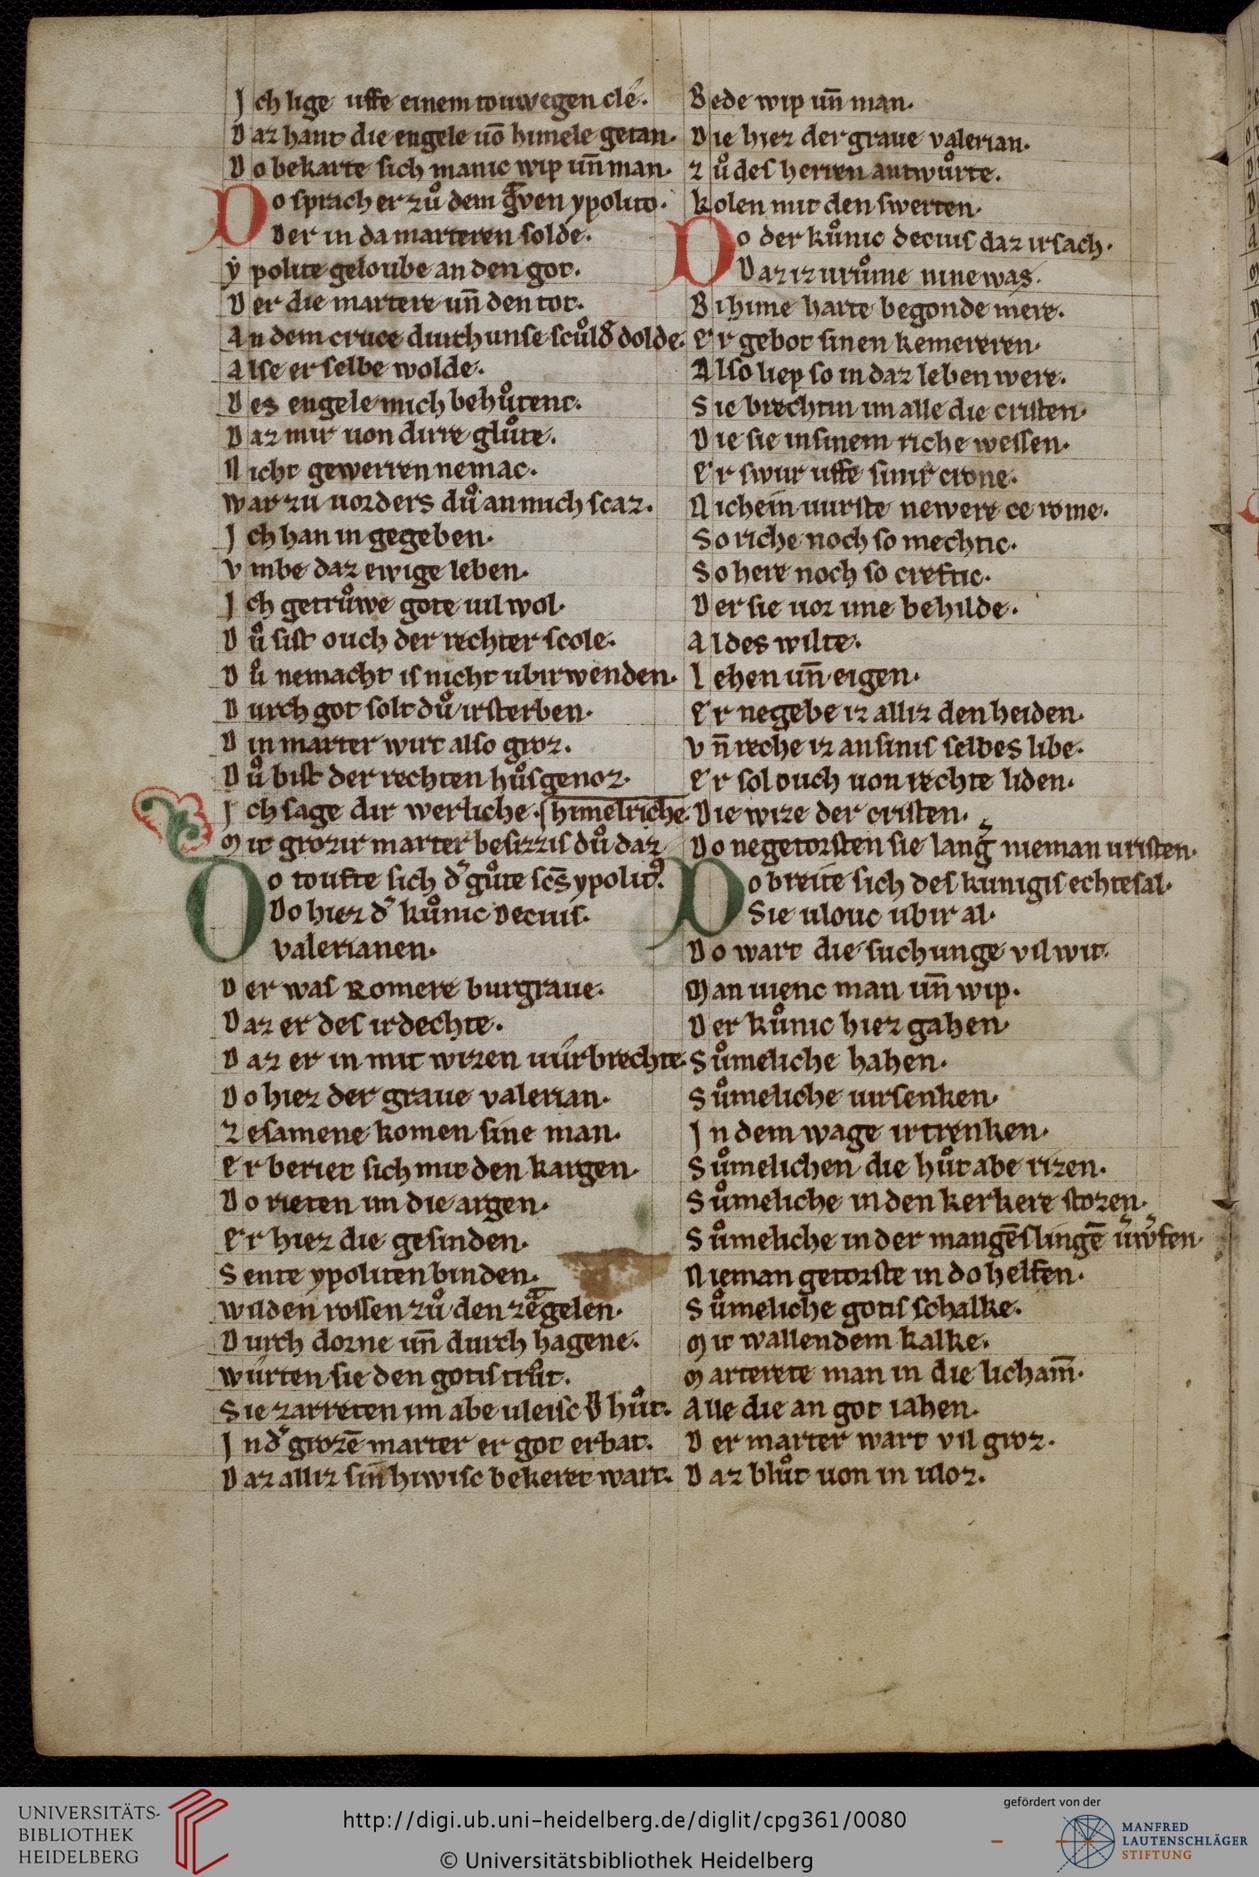 Ich lige uffe einem touwegen cle.
Daz hant die engele uō himele getan.
Do bekarte sich manic wip uñ man.
Do sprach er zů dem gᵃven ypolito.
Der in da marteren solde.
ypolite geloube an den got.
Der die martere uñ den tot.
An dem cruce durch unse sculd̓ dolde.
Alse er selbe wolde.
Des engele mich behůtent.
Daz mir uon dirre glůte.
Nicht gewerren nemac.
war zu uorders dů an mich scaz.
Ich han in gegeben.
vmbe daz ewige leben.
Ich getrůwe gote uil wol.
Dů sist ouch der rechter scole.
Dů nemacht is nicht ubirwenden.
Durch got solt dů irsterben.
Din marter wirt also groz.
Dů bist der rechten hůsgenoz.
Ich sage dir werliche. himelriche.
Mit grozir marter besizzis dů daz
Do toufte sich d̓ gůte scs̄ ypolit⁹.
Do hiez d̓ kůnic decius.
valerianen.
Der was Romere burgraue.
Daz er des irdechte.
Daz er in mit wizen uúrbrechte.
Do hiez der graue valerian.
Zesamene komen sine man.
Er beriet sich mit den kargen.
Do rieten im die argen.
Er hiez die gesinden.
Sente ypoliten binden.
wilden rossen zů den zᵃ̈gelen.
Durch dorne uñ durch hagene.
wurten sie den gotis trůt.
Sie zarreten im abe uleisc uñ hůt.
In d̓ grozē marter er got erbat.
Daz alliz sin hiwisc bekeret wart.
Bede wip uñ man.
Die hiez der graue valerian.
zů des herren antwůrte.
kolen mit den swerten.
Do der kůnic decius daz irsach.
Daz iz urůme nine was.
Bi hime harte begonde mere.
Er gebot sinen kemereren.
Also liep so in daz leben were.
Sie brechtin im alle die cristen.
Die sie in sinem riche wessen.
Er swur uffe sinir crone.
Nichein uurste newere ce rome.
So riche noch so mechtic.
So here noch so creftic.
Der sie uor ime behilde.
Al des wilte.
Lehen uñ eigen.
Er negebe iz alliz den heiden.
vñ reche iz an sinis selbes libe.
Er sol ouch uon rechte liden.
Die wize der cristen.
Do negetorsten sie lang̓ nieman uristen.
Do breite sich des kunigis echtesal.
Sie ulouc ubir al.
Do wart die suchunge vil wit.
Man uienc man uñ wip.
Der kůnic hiez gahen
Sůmeliche hahen.
Sůmeliche uirsenken.
In dem wage irtrenken.
Sůmelichen die hůt abe rizen.
Sůmeliche in den kerkere stozen.
Sůmeliche in der mangēslingē ůw̓fen.
Nieman getorste in do helfen.
Sůmeliche gotis schalke.
Mit wallendem kalke.
Marterete man in die licham̄.
Alle die an got iahen.
Der marter wart vil groz.
Daz blůt uon in uloz.
UNIVERSITÄTS-
BIBLIOTHEK
HEIDELBERG
http://digi.ub.uni-heidelberg.de/diglit/cpg361/0080
© Universitätsbibliothek Heidelberg
gefördert von der
MANFRED
LAUTENSCHLÄGER
STIFTUNG